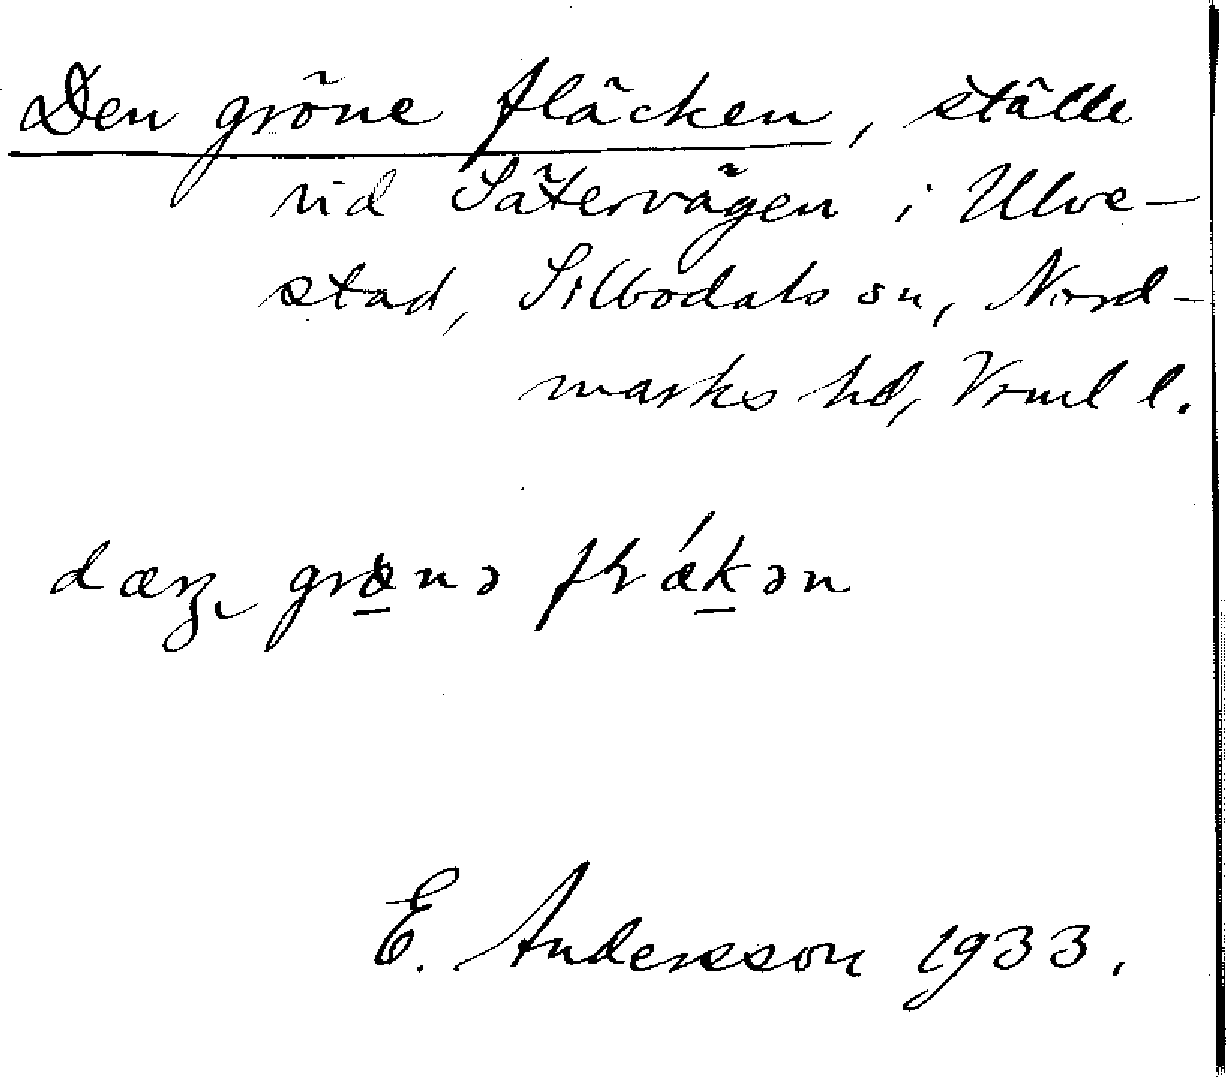 Den gröne fläcken, ställe
vid Sätervägen i Ulve-
stad, Silbodals sn, Nord-
marks hd, Vrml l.
grønə
E. Andersson 1933.